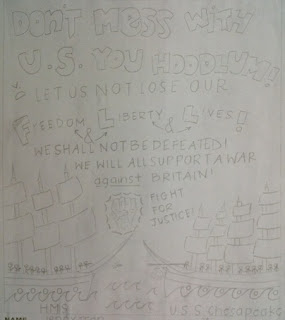 DON'T MESS WITH
U.S. YOU HOODLUM!
LET US NOT LOSE OUR
FREEDOM & LIBERTY & LIVES!
WE SHALL NOT BE DEFEATED!
WE WILL ALL SUPPORT A WAR
against BRITAIN!
FIGHT
FOR
JUSTICE!
HMS
U.S.S. Chesapeake
NAME